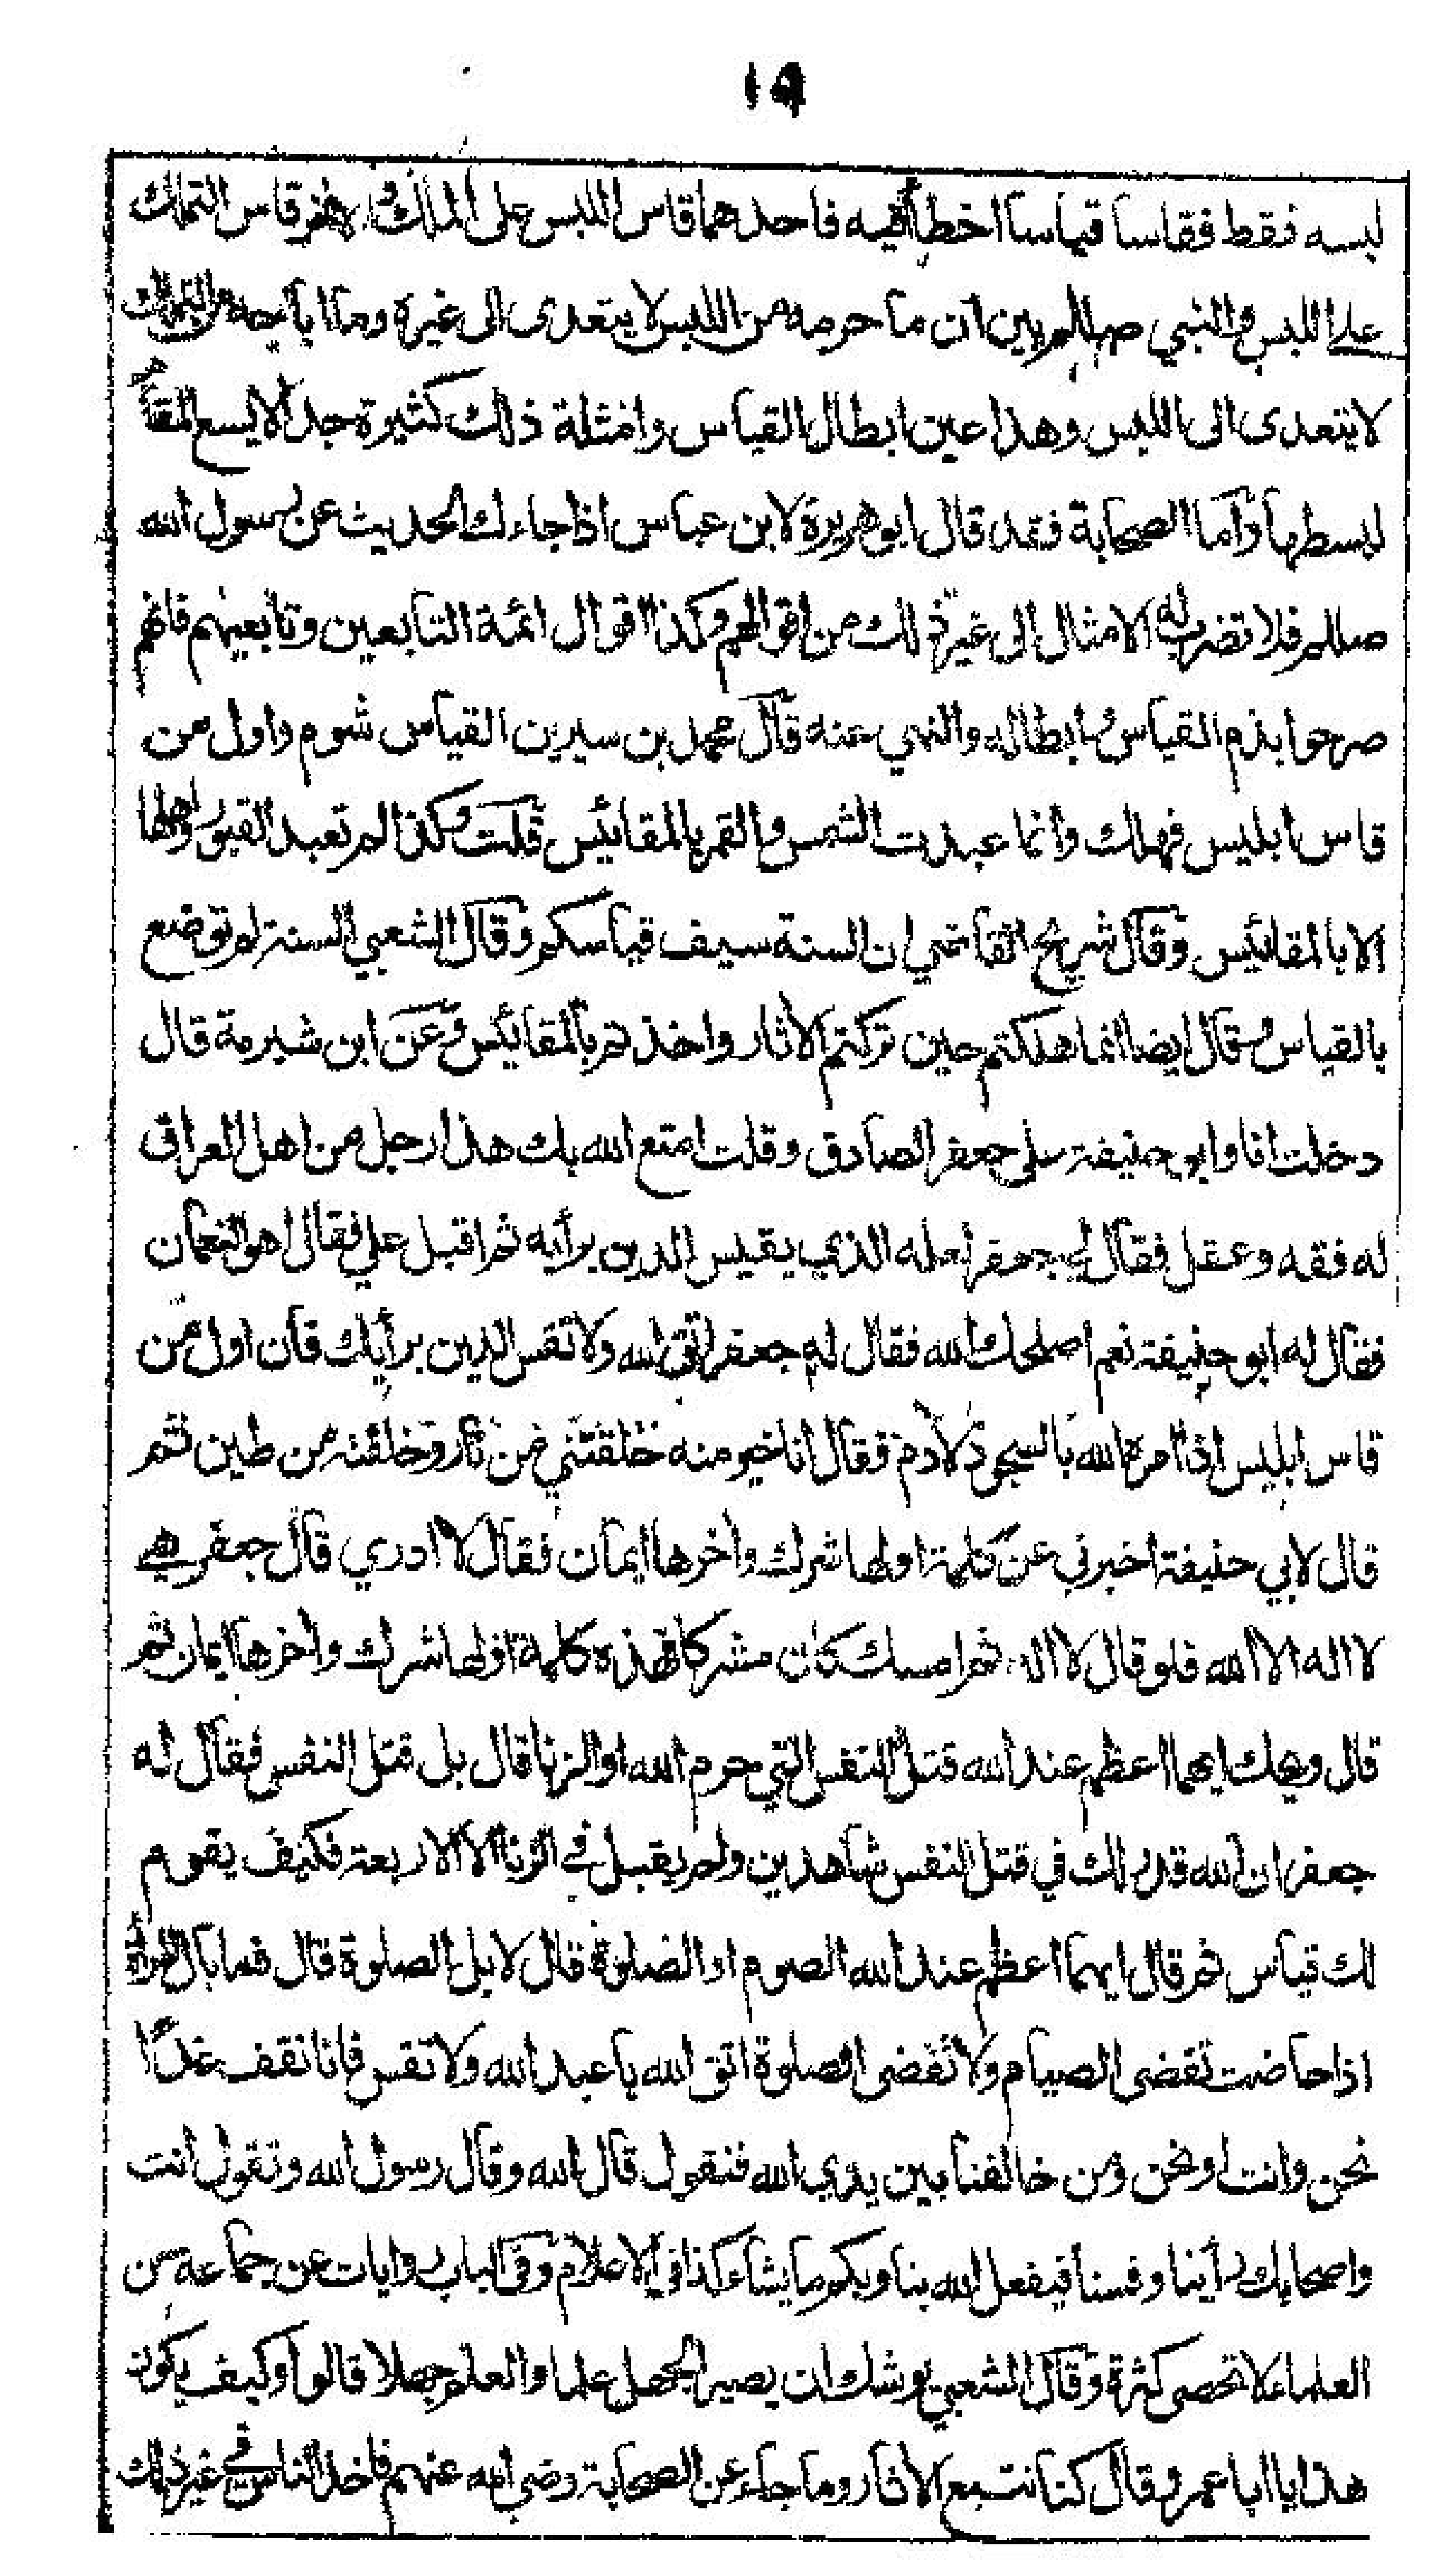 ١٩
لبسه فقط فقاسا قياسا اخطأ فيه فاحدهما قاس اللبس على الملك والاخر قاس التملك
على اللبس والنبي صللم بين ان ما حرمه من اللبس لا يتعدى الى غيره وما اباحه من التملك
لا يتعدى الى اللبس وهذا عين ابطال القياس وامثلة ذلك كثيرة جدا لا يسع المقام
لبسطها واما الصحابة فقد قال ابو هريرة لابن عباس اذا جاءك الحديث عن رسول الله
صللم فلا تضرب له الامثال الى غير ذلك من اقوالهم وكذا اقوال ائمة التابعين وتابعيهم فانهم
صرحوا بذم القياس وابطاله والنهي عنه قال محمد بن سيرين القياس شوم واول من
قاس ابليس فهلك وانما عبدت الشمس والقمر بالمقائيس قلت وكذا لم تعبد القبور واهلها
الا بالمقائيس وقال شريح القاضي ان السنة سيف قياسكم وقال الشعبي السنة لم توضع
بالقياس وقال ايضا انما هلكتم حين تركتم الاثار واخذتم بالمقائيس وعن ابن شبرمة قال
دخلت انا وابو حنيفة على جعفر الصادق وقلت امتع الله بك هذا رجل من اهل العراق
له فقه وعقل فقال لي جعفر لعله الذي يقيس الدين برأيه ثم اقبل علي فقال اهو النعمان
فقال له ابو حنيفة نعم اصلحك الله فقال له جعفر اتق الله ولا تقس الدين برأيك فان اول من
قاس ابليس اذا امره الله بالسجود لادم فقال انا خير منه خلقتني من نار وخلقته من طين ثم
قال لابي حنيفة اخبرني عن كلمة اولها شرك واخرها ايمان فقال لا ادري قال جعفر هي
لا اله الا الله فلو قال لا اله ثم امسك كان مشركا فهذه كلمة اولها شرك واخرها ايمان ثم
قال ويحك ايهما اعظم عند الله قتل النفس التي حرم الله او الزنا قال بل قتل النفس فقال له
جعفر ان الله قد لك في قتل النفس شاهدين ولم يقبل في الزنا الا الاربعة فكيف يقوم
لك قياس ثم قال ايهما اعظم عند الله الصوم او الصلوة قال لا بل الصلوة قال فما بال المرأة
اذا حاضت تقضى الصيام ولا تقضى الصلوة اتق الله يا عبد الله ولا تقس فانا نقف غدًا
نحن وانت او نحن ومن خالفنا بين يدي الله فنقول قال الله وقال رسول الله وتقول انت
واصحابك رأينا وقسنا فيفعل الله بنا وبكم ما يشاء كذا في الاعلام وفى الباب روايات عن جماعة من
العلماء لا تحصى كثرة وقال الشعبي يوشك ان يصير الجهل علما والعلم جهلا قالوا وكيف يكون
هذا يا ابا عمرو قال كنا نتبع الاثار وما جاء عن الصحابة رضي الله عنهم فاخذ الناس في غير ذلك